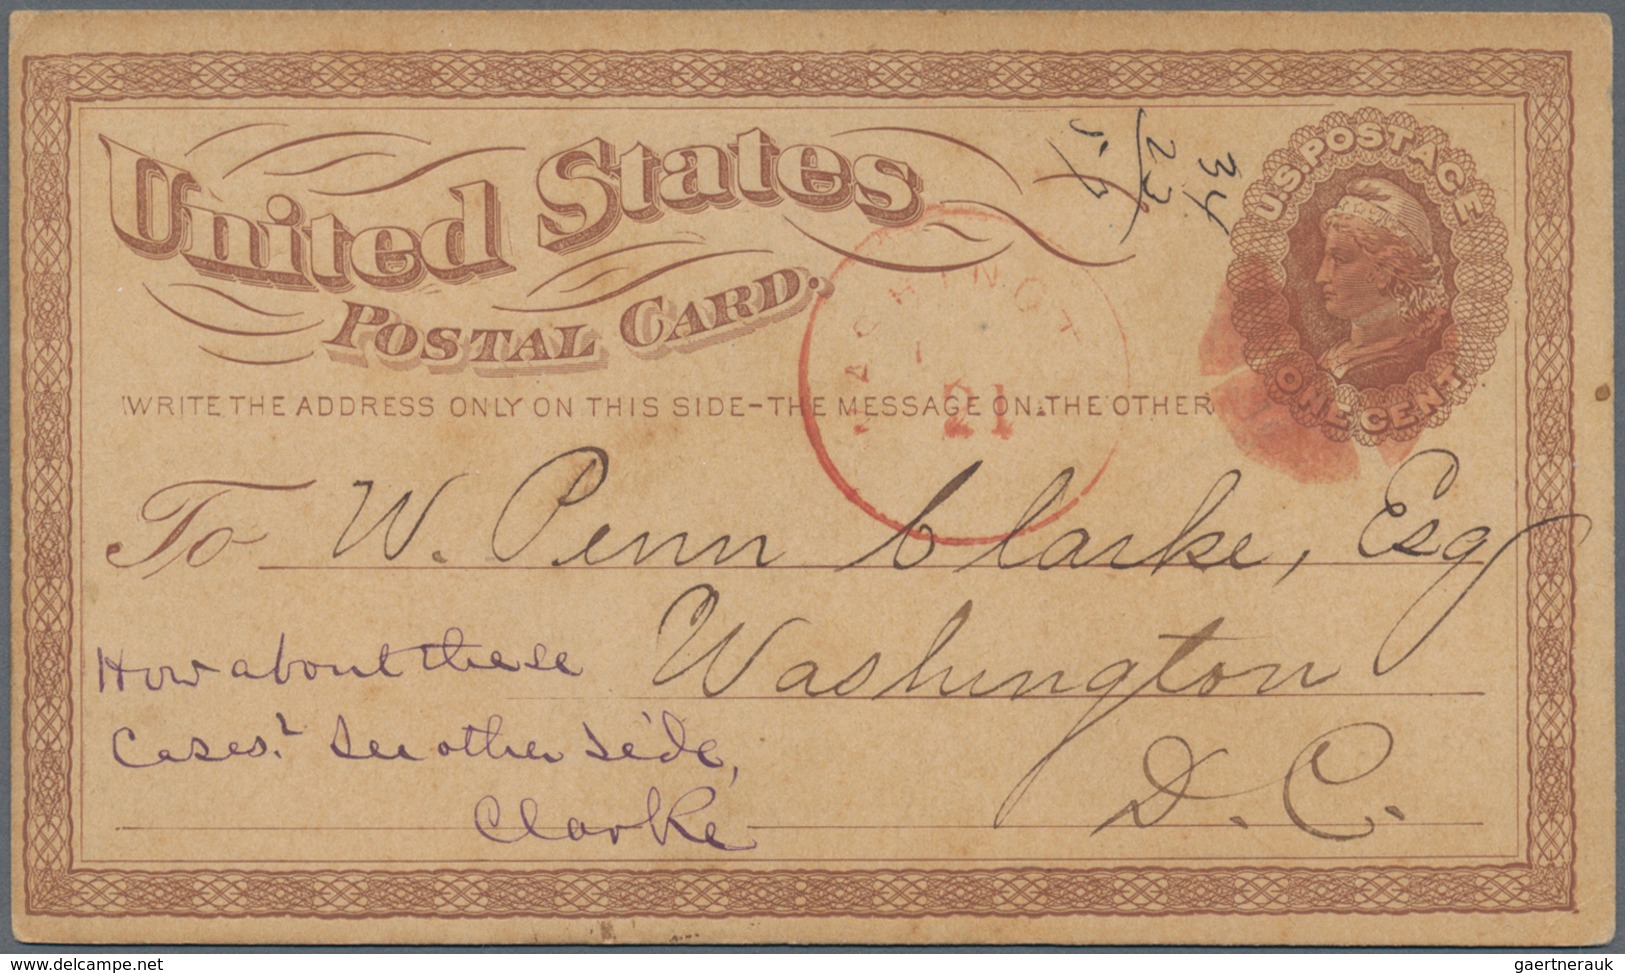 United States
POSTAL CARD.
U.S. POSTAGE
ONE CENT
34
23
WASHINGT
21
WRITE THE ADDRESS ONLY ON THIS SIDE-THE MESSAGE ON THE OTHER
To W. Penn Clarke, Esq
Washington
D. C.
How about these
Cases? See other side,
Clarke
www.delcampe.net
gaertnerauk